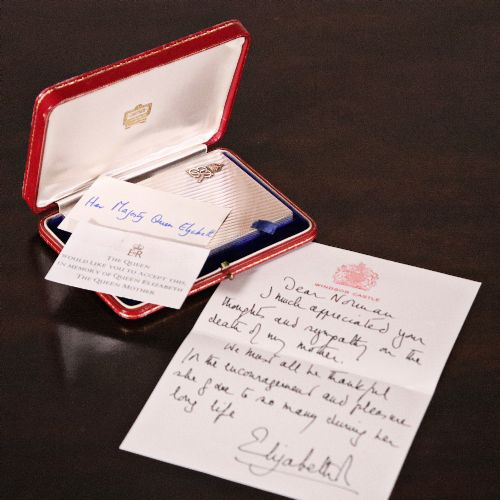 Her Majesty Queen Elizabeth
E R
THE QUEEN
WOULD LIKE YOU TO ACCEPT THIS
IN MEMORY OF QUEEN ELIZABETH
THE QUEEN MOTHER
WINDSOR CASTLE
Dear Norman
I much appreciated your
thoughts and sympathy on the
death of my mother.
We must all be thankful
for the encouragement and pleasure
she gave to so many during her
long life
Elizabeth R